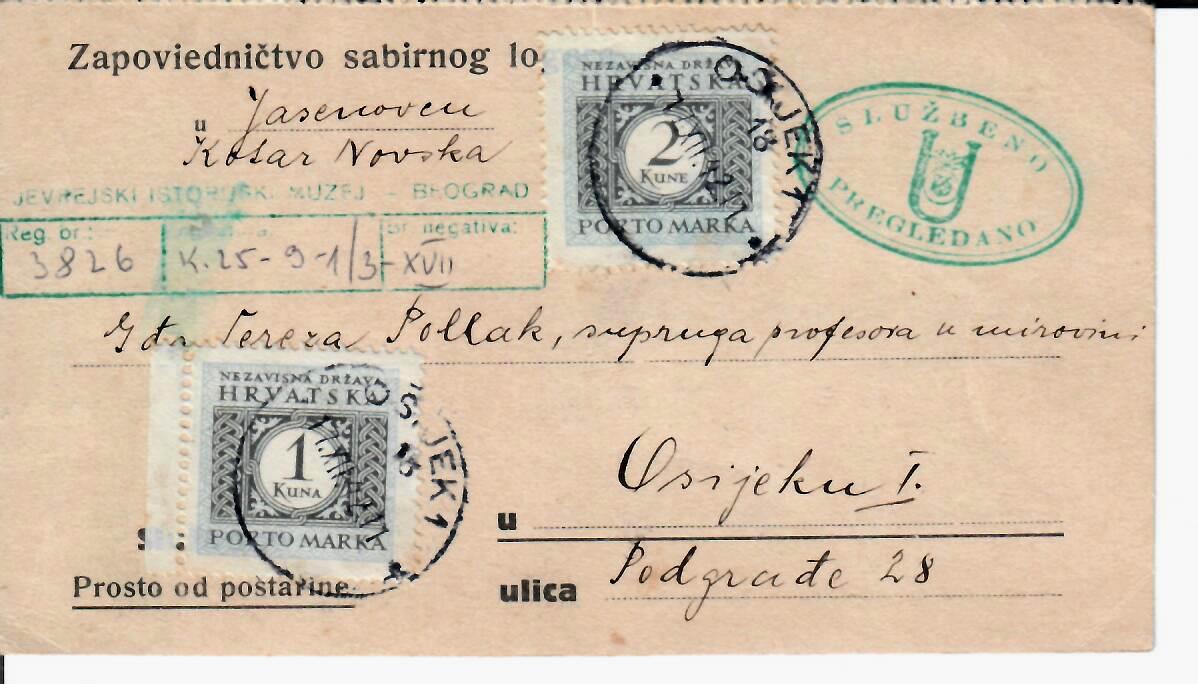 Zapoviedničtvo sabirnog lo
u Jasenovcu
Kotar Novska
JEVREJSKI ISTORIJSKI MUZEJ - BEOGRAD
Reg. br.: Br. negativa:
3826 K.25-9-1/3-XVII
NEZAVISNA DRŽAVA
HRVATSKA
2
KUNE
PORTO MARKA
OSIJEK 1
18
SLUŽBENO
PREGLEDANO
Gđa Tereza Pollak, supruga profesora u mirovini
NEZAVISNA DRŽAVA
HRVATSKA
1
KUNA
PORTO MARKA
OSIJEK 1
18
u Osijeku I.
Prosto od poštarine
ulica Podgrađe 28